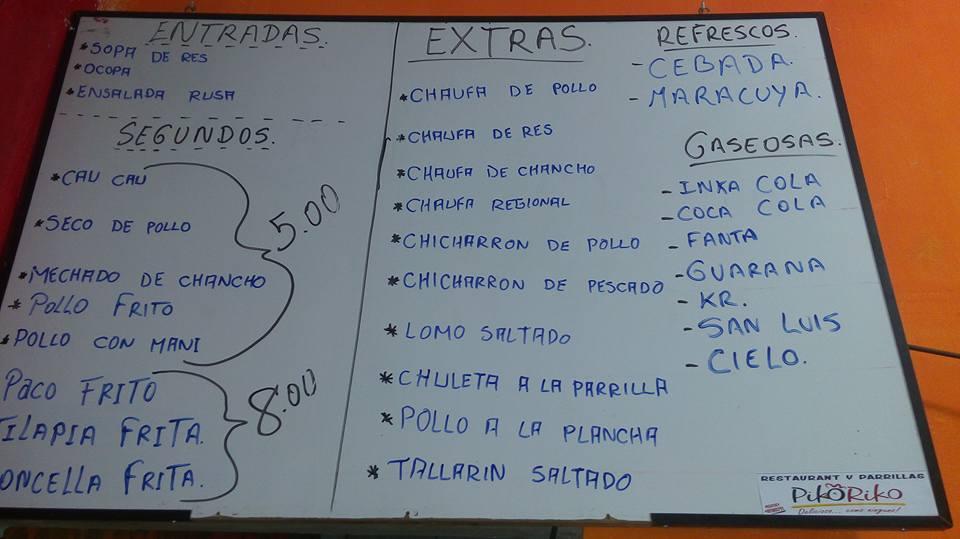 ENTRADAS.
*SOPA DE RES
*OCOPA
*ENSALADA RUSA
SEGUNDOS.
*CAU CAU
*SECO DE POLLO
*MECHADO DE CHANCHO
*POLLO FRITO
*POLLO CON MANI
5.00
PACO FRITO
TILAPIA FRITA.
ONCELLA FRITA.
8.00
EXTRAS.
*CHAUFA DE POLLO
*CHAUFA DE RES
*CHAUFA DE CHANCHO
*CHAUFA REGIONAL
*CHICHARRON DE POLLO
*CHICHARRON DE PESCADO
*LOMO SALTADO
*CHULETA A LA PARRILLA
*POLLO A LA PLANCHA
*TALLARIN SALTADO
REFRESCOS.
-CEBADA.
-MARACUYA.
GASEOSAS.
-INKA COLA
-COCA COLA
-FANTA
-GUARANA
-KR.
-SAN LUIS
-CIELO.
RESTAURANT Y PARRILLAS
PikoRiko
Delicioso... como ninguno!